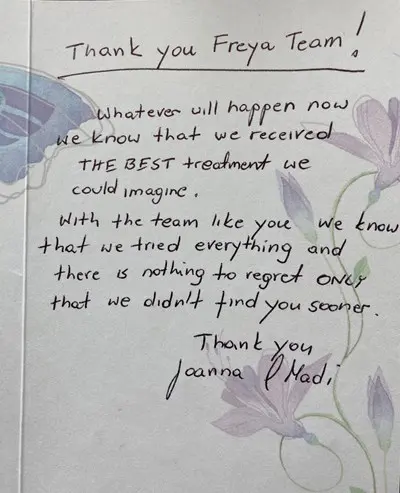 Thank you Freya Team!
Whatever will happen now
we know that we received
THE BEST treatment we
could imagine.
With the team like you we know
that we tried everything and
there is nothing to regret ONLY
that we didn't find you sooner.
Thank you
Joanna & Madi